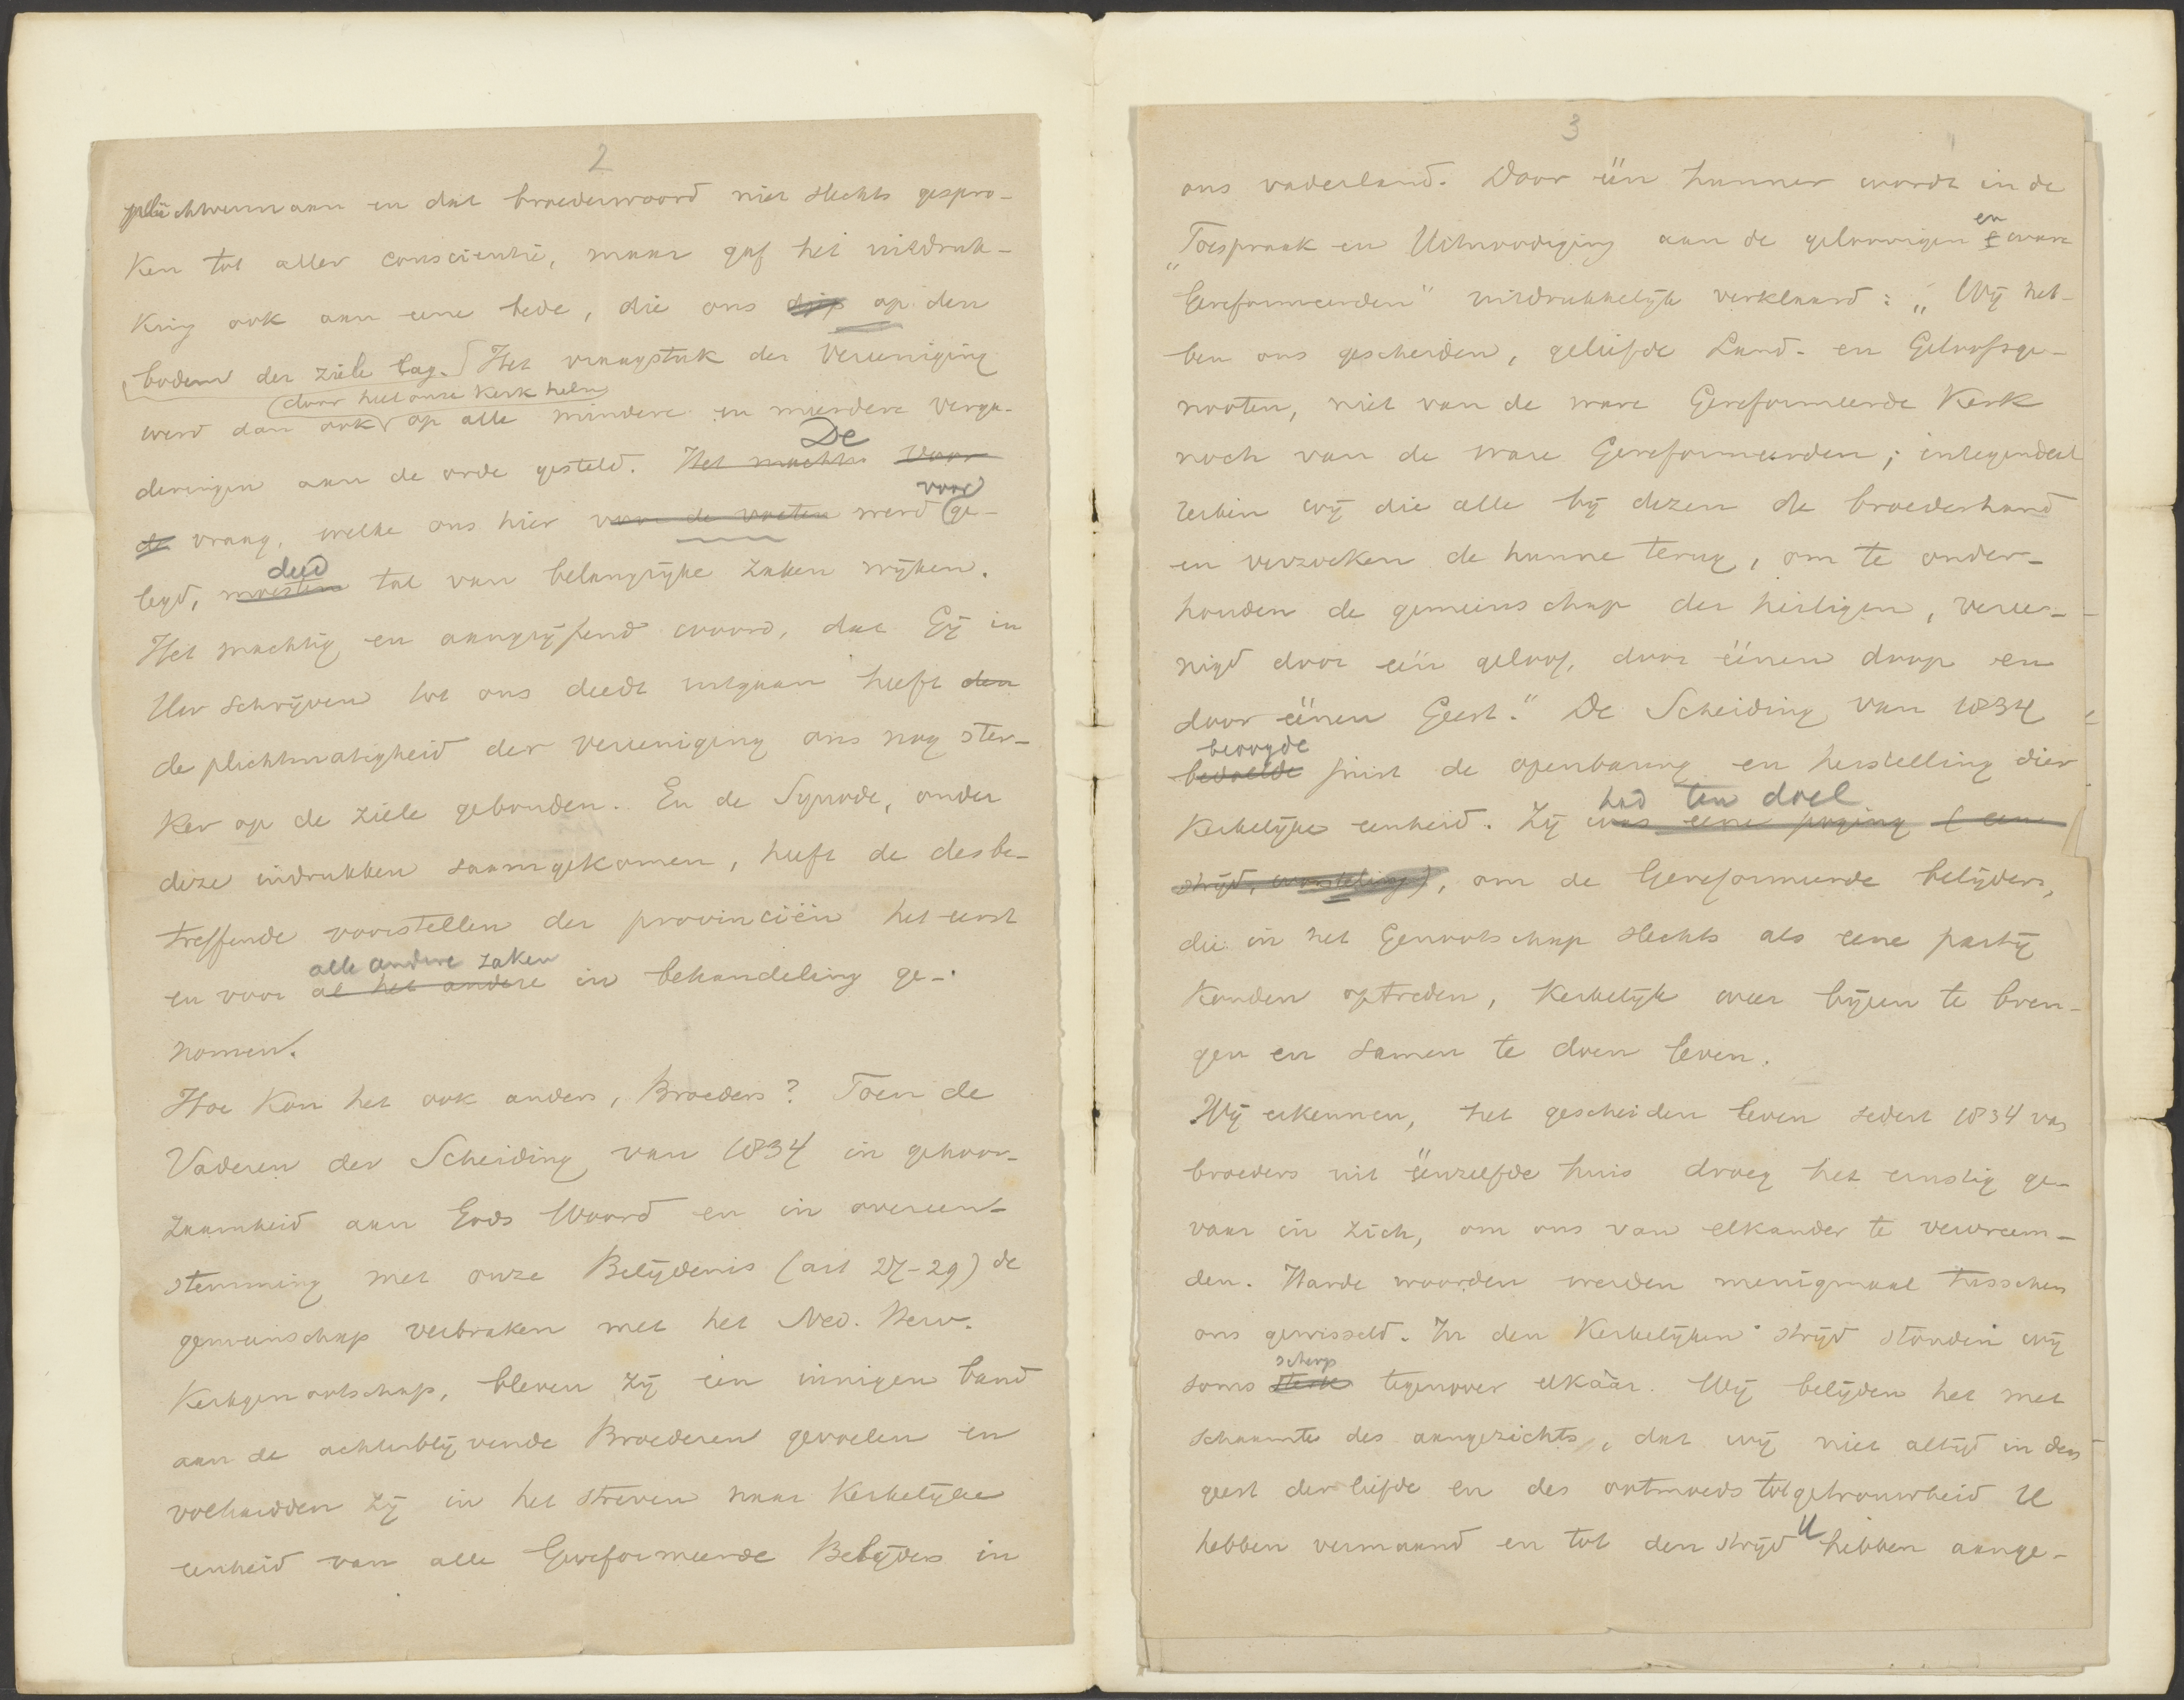 2
en dat broederwoord niet slechts gespro-
ken tot aller conscientie, maar gaf het uitdruk-
king ook aan eene bede, die ons diep op den
bodem der ziele lag. Het vraagstuk der Vereeniging
door heel onze Kerk heen
werd dan ook op alle mindere en meerdere verga-
deringen aan de orde gesteld. Het machti Voor
De
de vraag, welke ons hier voor de voeten werd ge-
voor
legd, moesten tal van belangrijke zaken wijken.
deed
Het machtig en aangrijpend woord, dat Gij in
Uw schrijven tot ons deedt uitgaan heeft den
de plichtmatigheid der vereeniging ons nog ster-
ker op de ziele gebonden. En de Synode, onder
deze indrukken saamgekomen, heeft de desbe-
treffende voorstellen der provinciën het eerst
alle andere zaken
en voor al het andere in behandeling ge-
nomen.
Hoe kon het ook anders, Broeders? Toen de
Vaderen der Scheiding van 1834 in gehoor-
zaamheid aan Gods Woord en in overeen-
stemming met onze Belijdenis (art 27-29) de
gemeenschap verbraken met het Ned. Herv.
Kerkgenootschap, bleven zij een innigen band
aan de achterblijvende Broederen gevoelen en
volhardden zij in het streven naar Kerkelijke
eenheid van alle Gereformeerde Belijders in
3
ons vaderland. Door één hunner wordt in de
en
"Toespraak en Uitnoodiging aan de geloovigen & ware
Gereformeerden" uitdrukkelijk verklaard: „Wij heb-
ben ons gescheiden, geliefde Land- en Geloofsge-
nooten, niet van de ware Gereformeerde Kerk
noch van de ware Gereformeerden; integendeel
reiken wij die alle bij dezen de broederhand
en verzoeken de hunne terug, om te onder-
houden de gemeenschap der heiligen, veree-
nigd door één geloof, door éénen doop en
door éénen Geest." De Scheiding van 1834
beoogde
bedoelde juist de openbaring en herstelling dier
had ten doel
Kerkelijke eenheid. Zij was eene poging (een
strijd, worsteling), om de Gereformeerde belijders,
die in het Genootschap slechts als eene partij
konden optreden, Kerkelijk weer bijeen te bren-
gen en samen te doen leven.
Wij erkennen, het gescheiden leven sedert 1834 van
broeders uit éénzelfde huis droeg het ernstig ge-
vaar in zich, om ons van elkander te vervreem-
den. Harde woorden werden menigmaal tusschen
ons gewisseld. In den Kerkelijken strijd stonden wij
scherp
soms sterk tegenover elkaâr. Wij belijden het met
schaamte des aangezichts, dat wij niet altijd in den
geest der liefde en des ootmoeds tot getrouwheid U
hebben vermaand en tot den strijd U hebben aange-